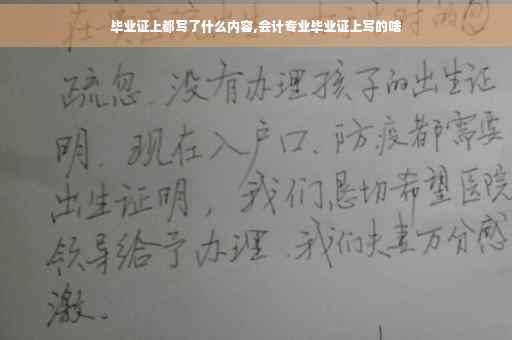 毕业证上都写了什么内容,会计专业毕业证上写的啥
疏忽.没有办理孩子的出生证
明.现在入户口、防疫都需要
出生证明，我们恳切希望医院
领导给予办理.我们夫妻万分感
激。